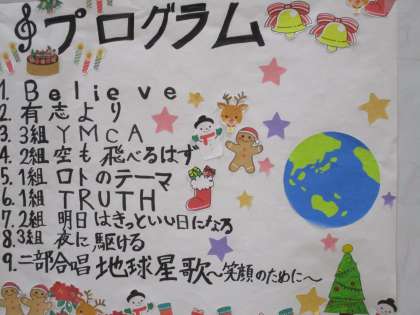 プログラム
1. Believe
2. 有志より
3. 3組 YMCA
4. 2組 空も飛べるはず
5. 1組 ロトのテーマ
6. 1組 TRUTH
7. 2組 明日はきっといい日になる
8. 3組 夜に駆ける
9. 二部合唱 地球星歌～笑顔のために～